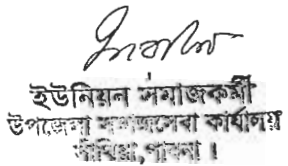 ইউনিয়ন সমাজকর্মী
উপজেলা সমাজসেবা কার্যালয়
সাঁথিয়া, পাবনা।